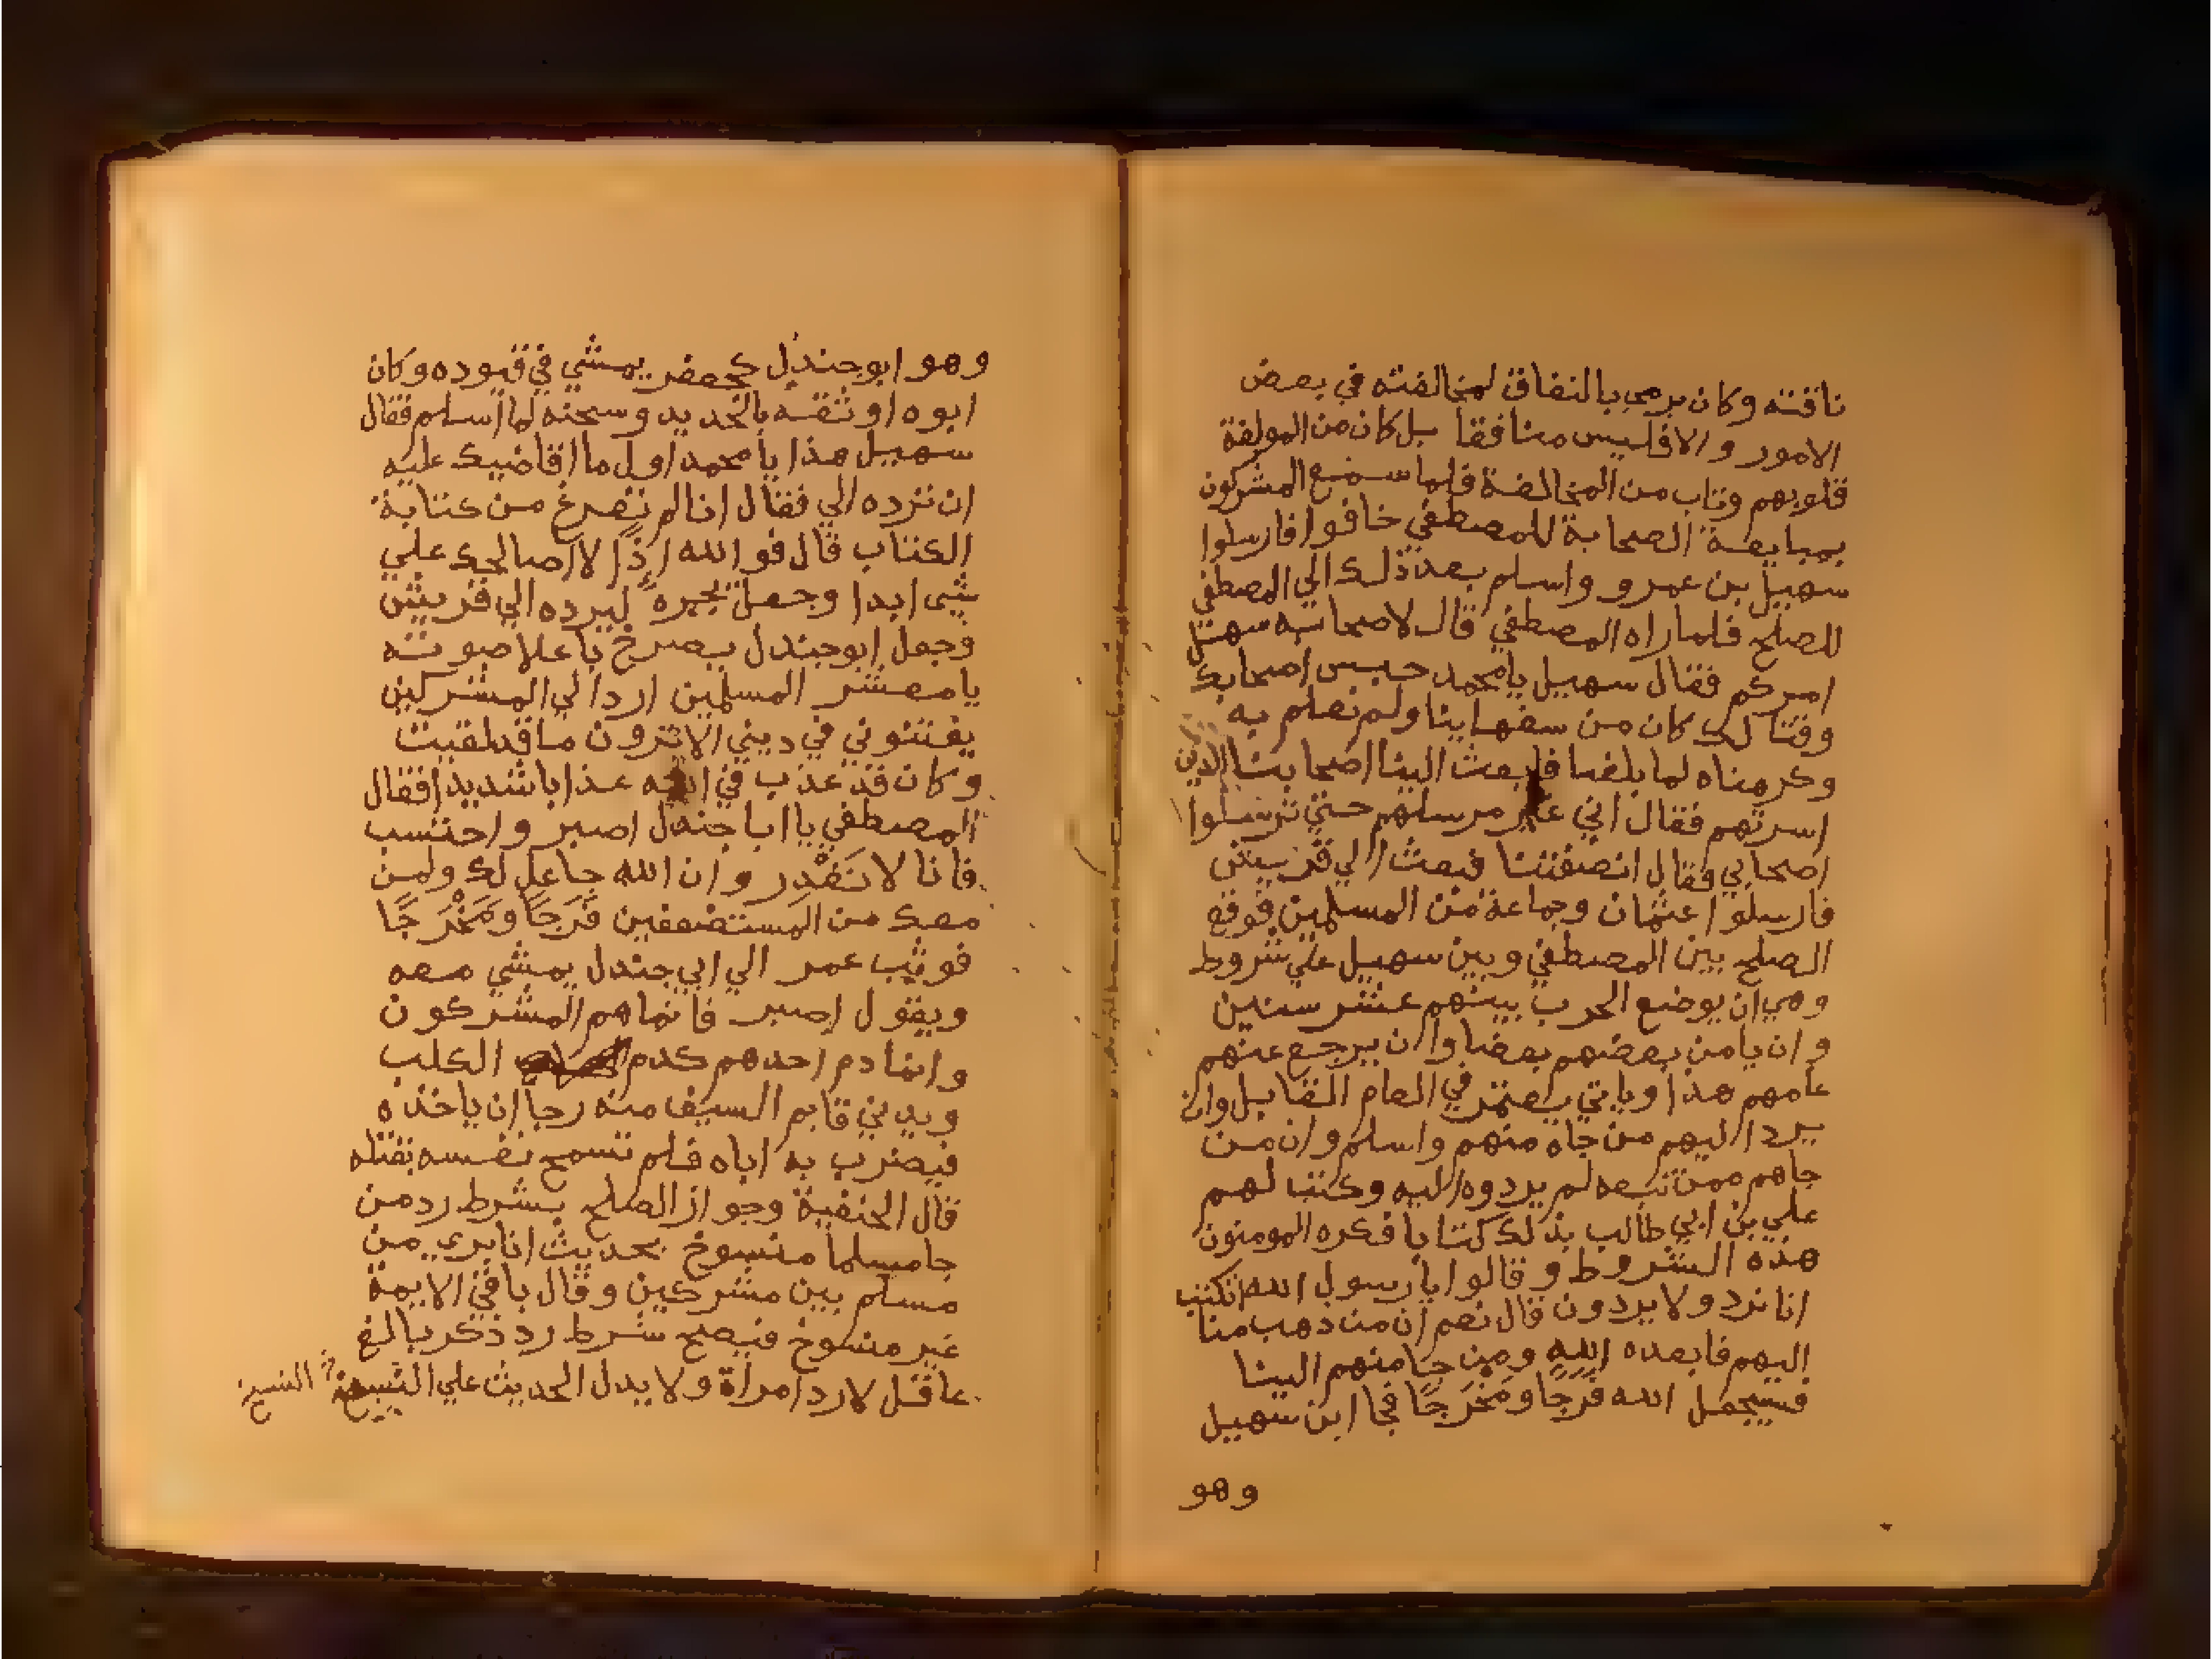 ناقته وكان يرمي بالنفاق لمخالفته في بعض
الامور والا فليس منافقا بل كان من المولفة
قلوبهم وتاب من المخالفة فلما سمع المشركون
بمبايعة الصحابة للمصطفي خافوا فارسلوا
سهيل بن عمرو واسلم بعد ذلك الي المصطفي
للصلح فلما راه المصطفي قال لاصحابه سهل
امركم فقال سهيل يا محمد حبس اصحابك
وقتالك كان من سفهاينا ولم نعلم به
وكرهناه لما بلغنا فابعث الينا اصحابنا الذين
اسرتهم فقال اني غير مرسلهم حتي ترسلوا
اصحابي فقال انصفتنا فبعث الي قريش
فارسلوا عثمان وجماعة من المسلمين فوقع
الصلح بين المصطفي وبين سهيل علي شروط
وهي ان يوضع الحرب بينهم عشر سنين
وان يامن بعضهم بعضا وان يرجع عنهم
عامهم هذا وياتي يعتمر في العام القابل وان
يرد اليهم من جاه منهم واسلم وان من
جاهم ممن تبعه لم يردوه اليه وكتب لهم
علي بن ابي طالب بذلك كتابا فكره المومنون
هذه الشروط وقالوا يا رسول الله اتكتب
انا نرد ولا يردون قال نعم ان من ذهب منا
اليهم فابعده الله ومن جا منهم الينا
فسيجعل الله فَرَجًا ومَخْرَجًا فجا ابن سهيل
وهو
وهو ابو جندل كجعفر يمشي في قيوده وكان
ابوه اوثقه بالحديد وسجنه لما اسلم فقال
سهيل هذا يا محمد اول ما اقاضيك عليه
ان ترده الي فقال انا لم نفرغ من كتابة
الكتاب قال فوالله اِذًا لا اصالحك علي
شي ابدا وجعل يجره ليرده الي قريش
وجعل ابو جندل يصرخ باعلا صوته
يا معشر المسلمين اردا لي المشركين
يفتنوني في ديني الا ترون ما قد لقيت
وكان قد عذب في الله عذابا شديدا فقال
المصطفي يا ابا جندل اصبر واحتسب
فانا لا نَغْدِر وان الله جاعل لك ولمن
معك من المستضعفين فَرَجًا ومَخْرَجًا
فوثب عمر الي ابي جندل يمشي معه
ويقول اصبر فانما هم المشركون
وانما دم احدهم كدم الكلب
ويدني قايم السيف منه رجا ان ياخذه
فيضرب به اباه فلم تسمح نفسه بقتله
قال الحنفية وجواز الصلح بشرط رد من
جا مسلما منسوخ بحديث انا بري من
مسلم بين مشركين وقال باقي الايمة
غير منسوخ فيصح شرط رد ذكر بالغ
عاقل لا رد امراة ولا يدل الحديث علي النسخ
النسخ